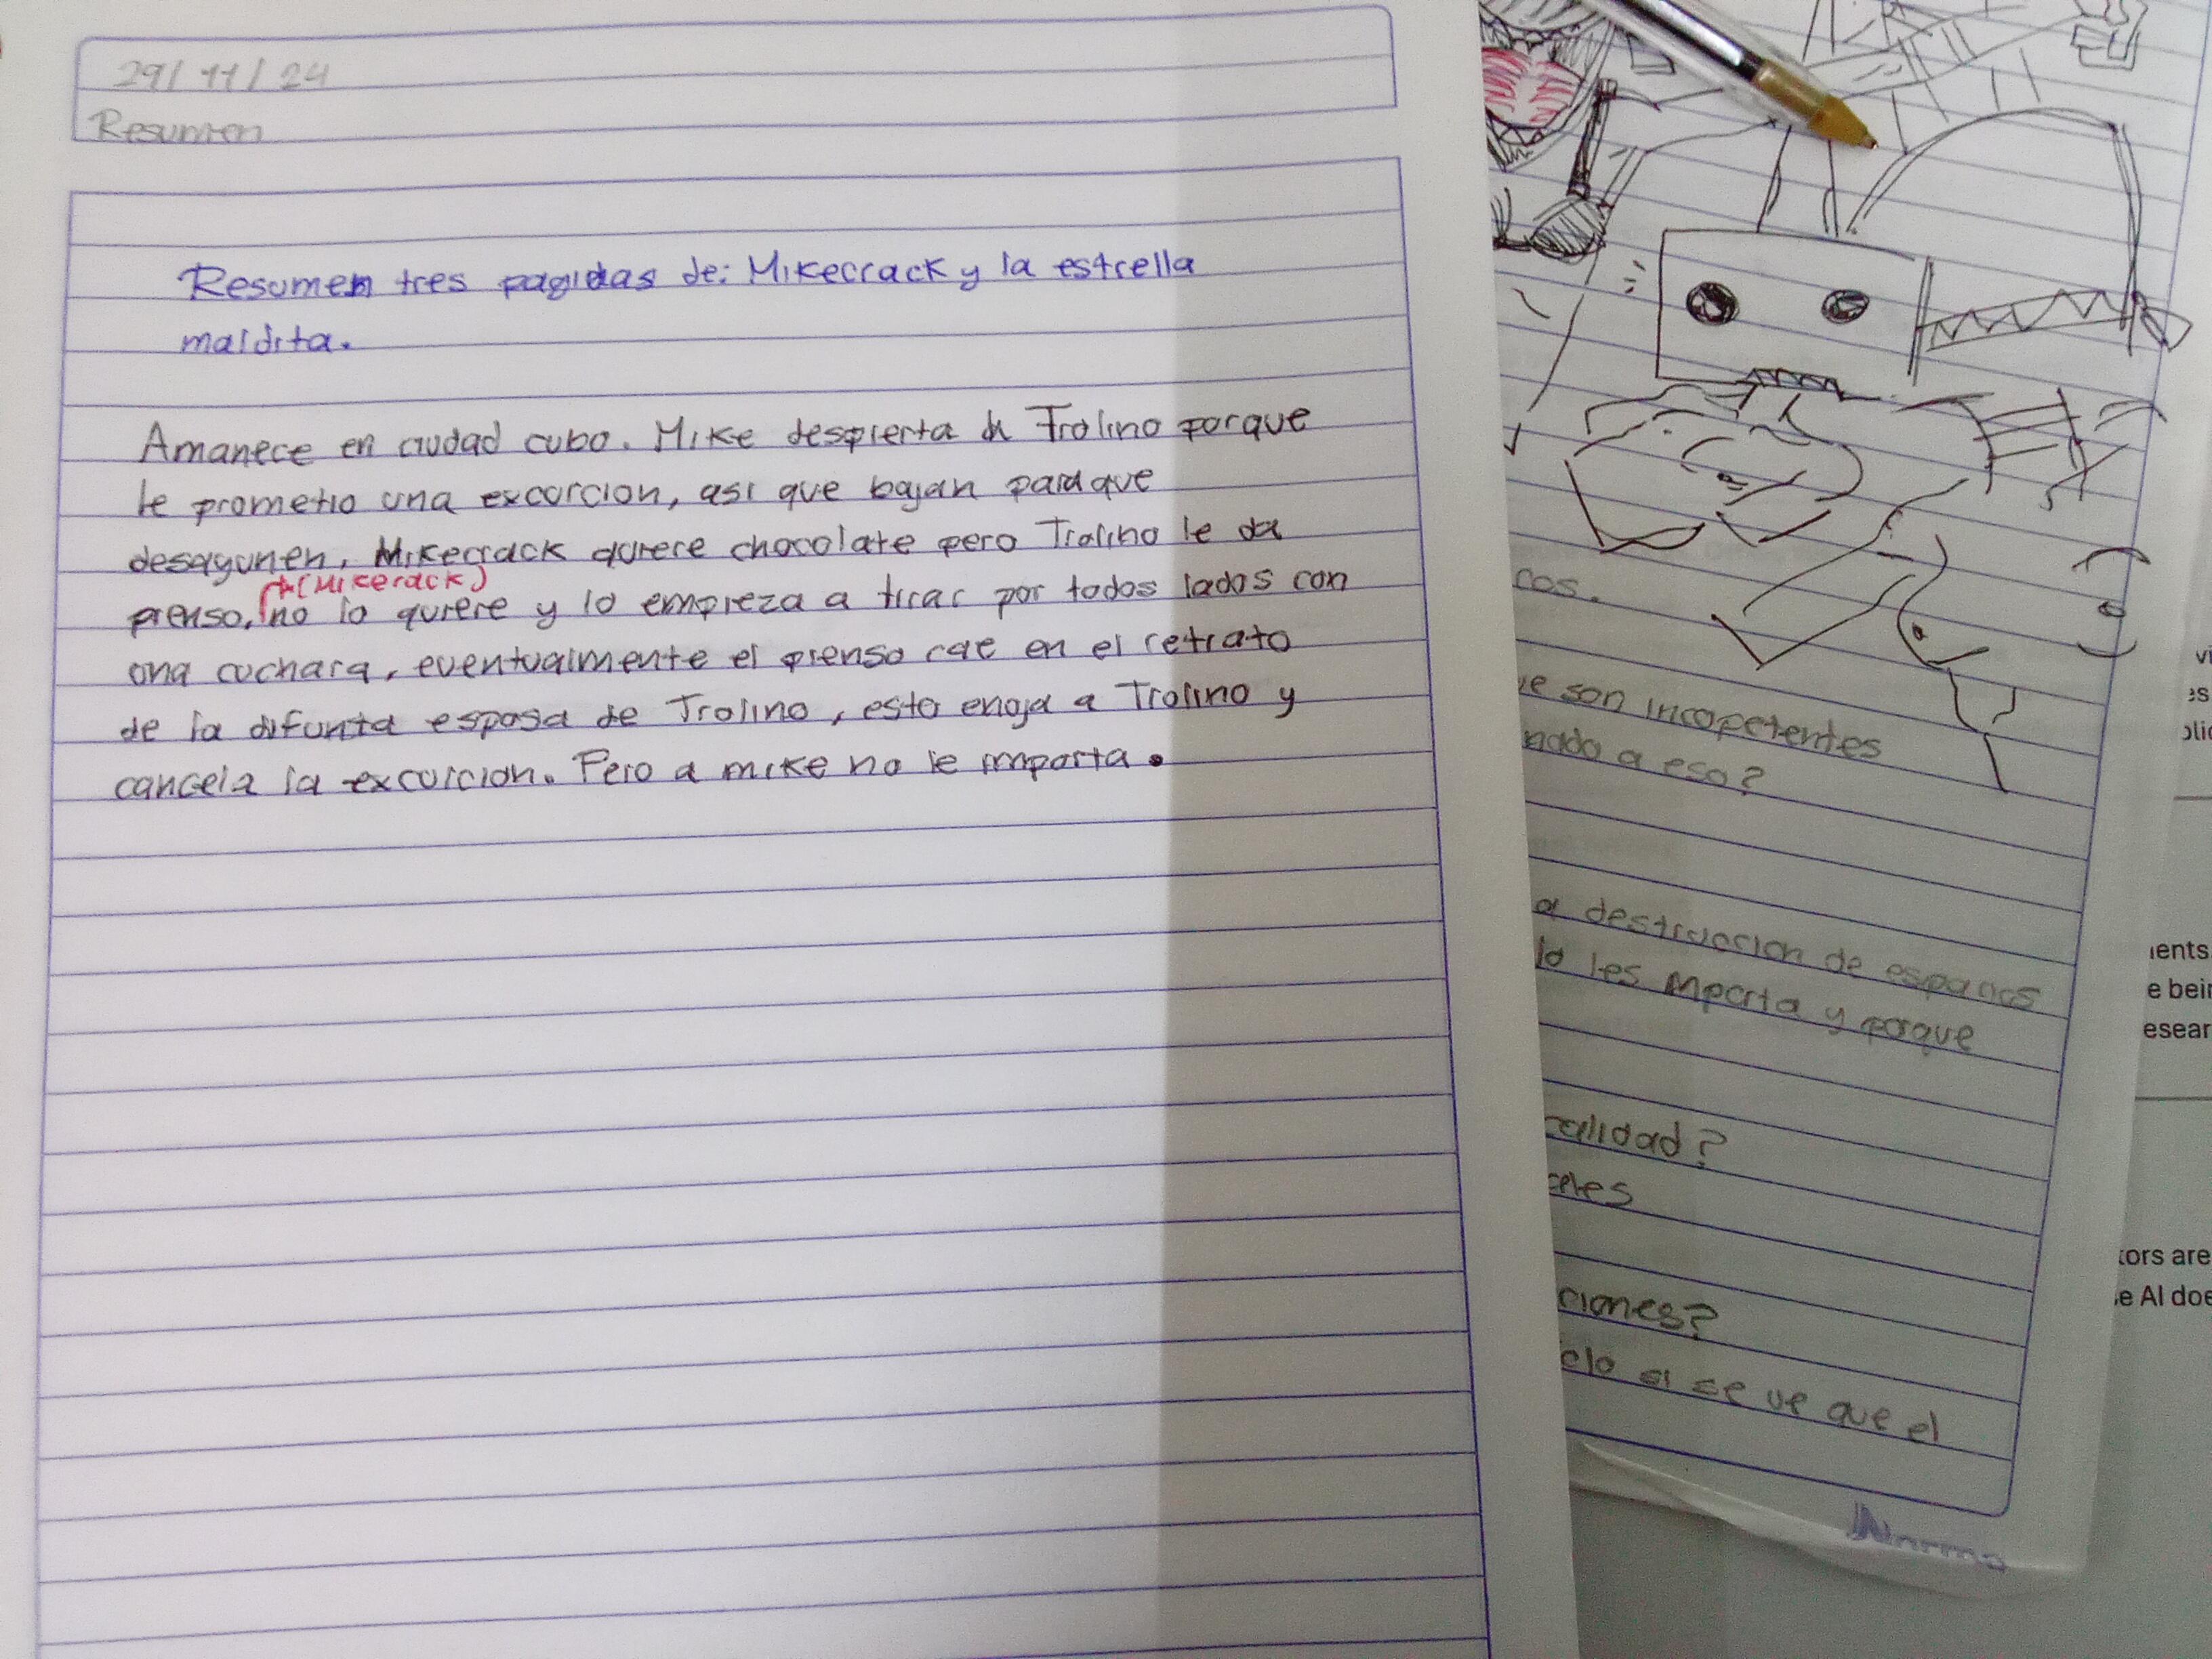 29/11/24
Resumen
Resumen tres pagidas de: Mikecrack y la estrella
maldita.
Amanece en ciudad cubo. Mike despierta a Trolino porque
le prometio una excurcion, asi que bajan para que
desayunen, Mikecrack quiere chocolate pero Trolino le da
(Mikerack)
pienso, no lo quiere y lo empieza a tirar por todos lados con
una cuchara, eventualmente el pienso cae en el retrato
de la difunta esposa de Trolino, esto enoja a Trolino y
cancela la excurcion. Pero a mike no le importa.
cos.
ue son incopetentes
nado a eso?
a destruccion de espacios
lo les mporta y porque
calidad?
ciones?
elo si se ve que el
Norma
vi
es
olic
ients
e bein
esear
tors are
e AI doe